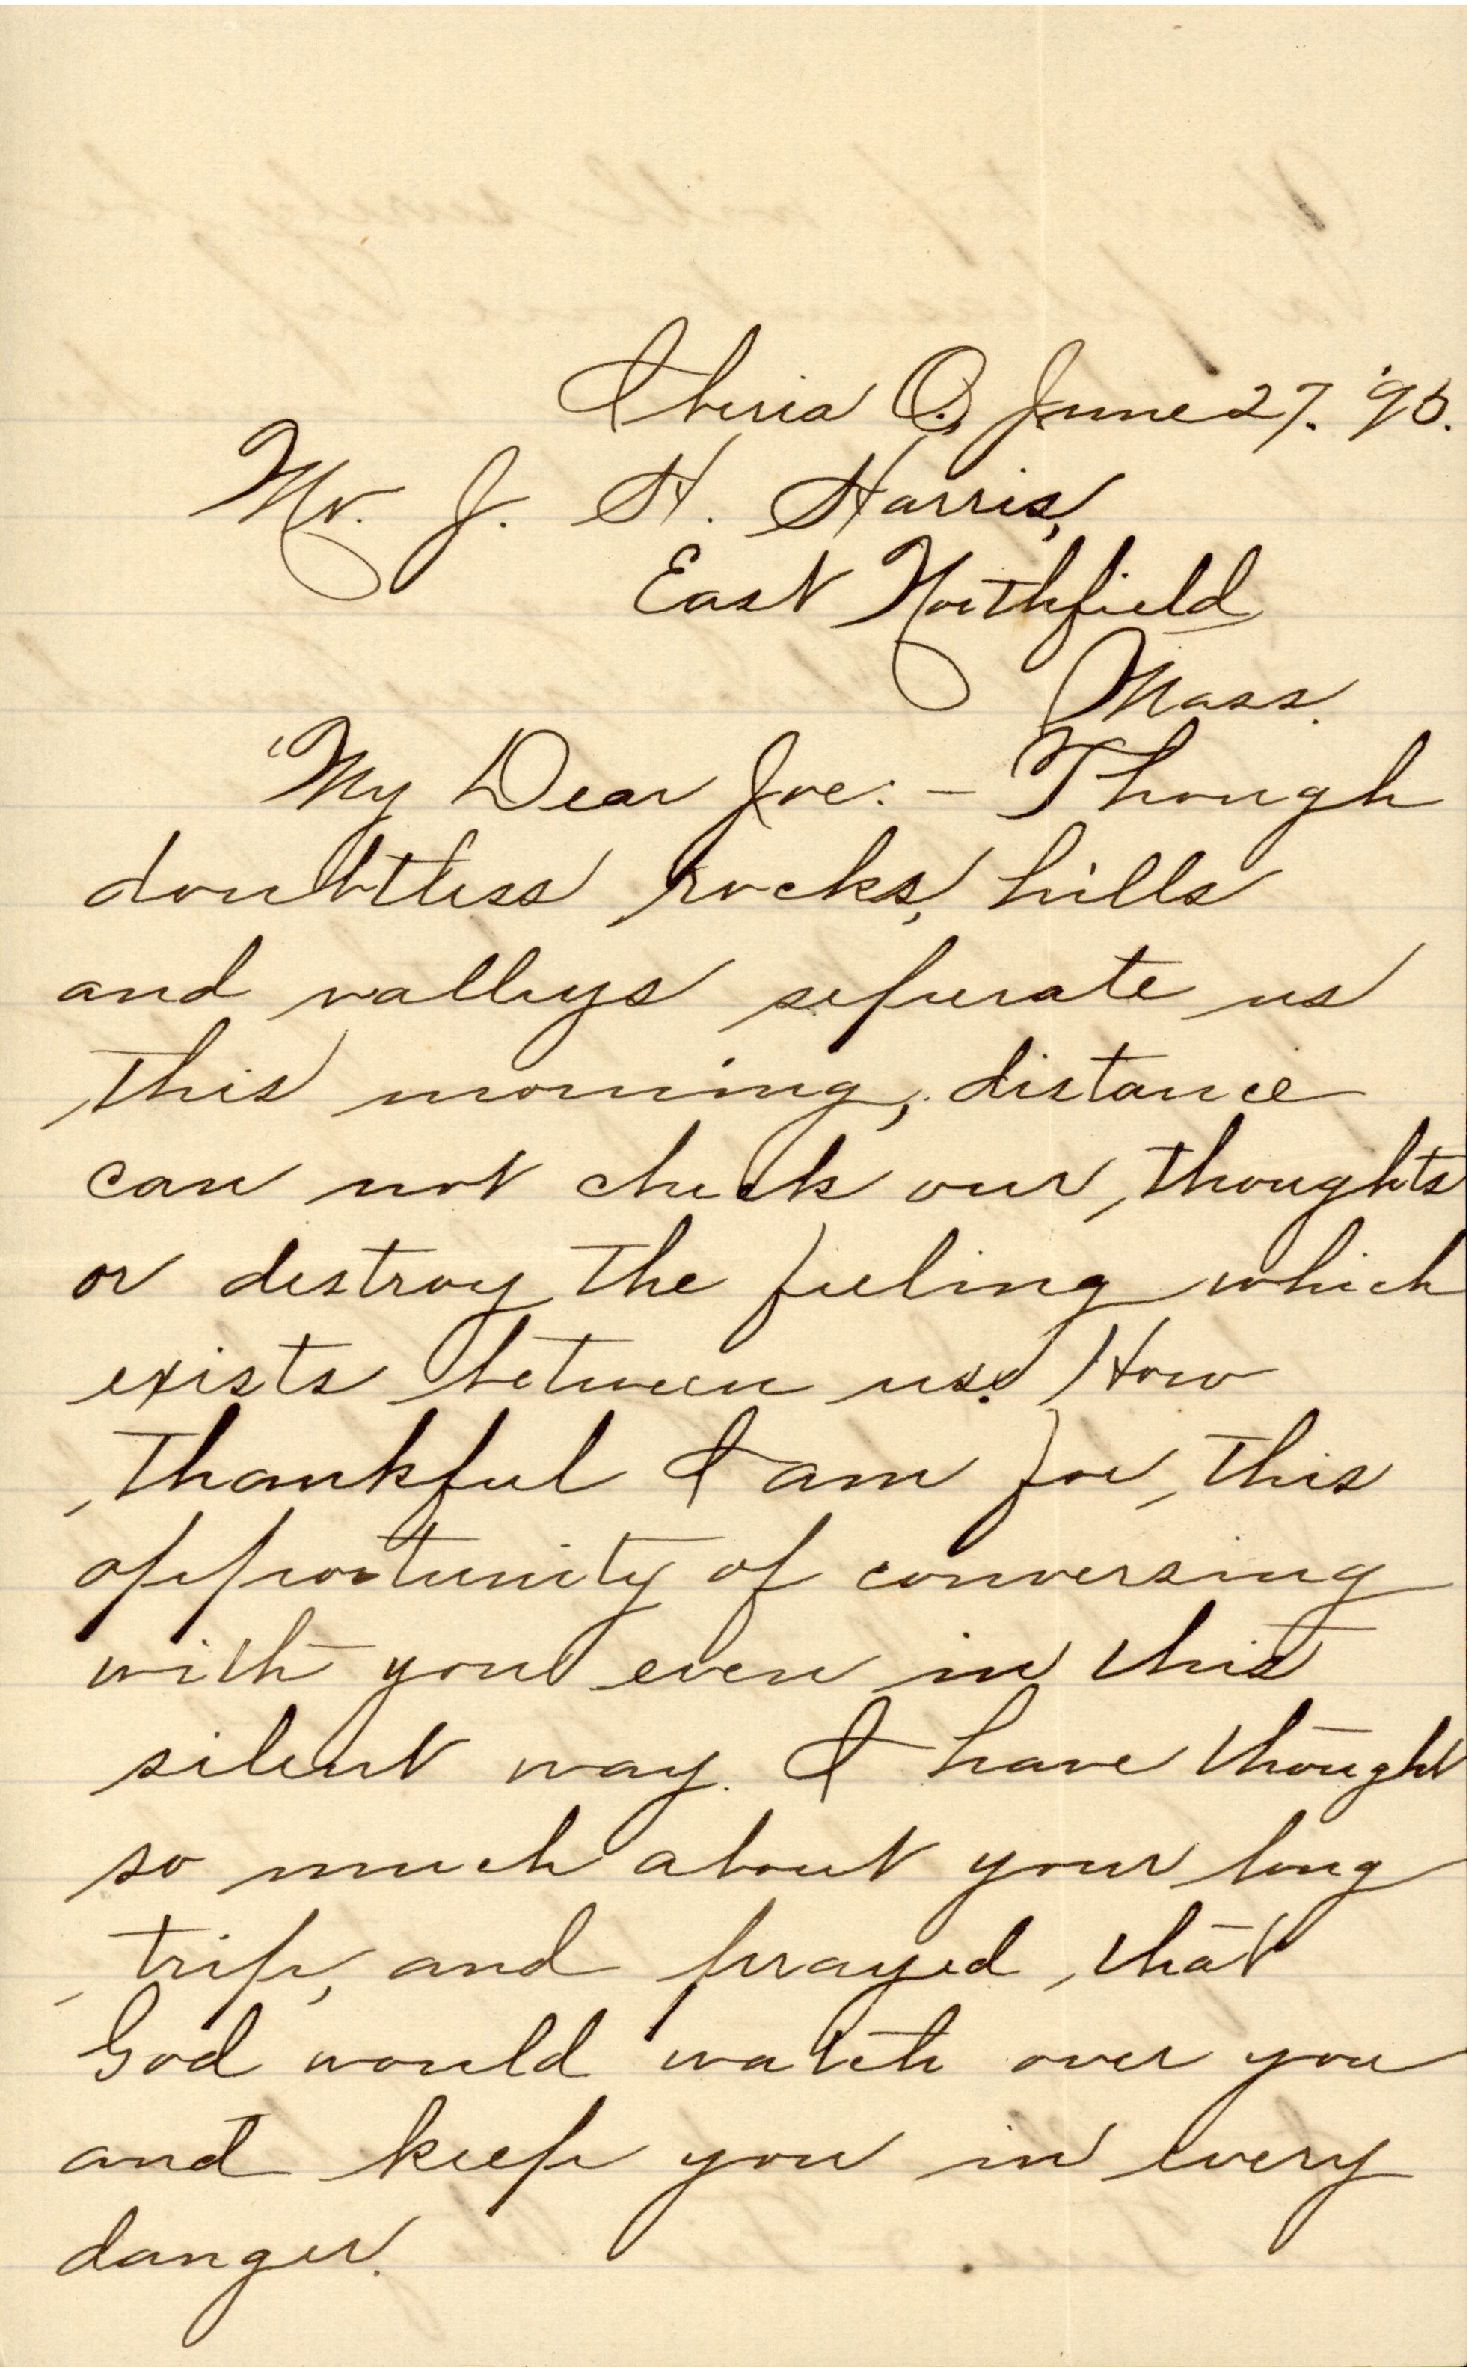 Iberia O., June 27. '95.
Mr. J. H. Harris,
East Northfield
Mass.
"My Dear Joe: - Though
doubtless rocks, hills
and valleys seperate us
this morning, distance
can not check our thoughts
or destroy the feeling which
exists between us. How
thankful I am for this
opportunity of conversing
with you even in this
silent way. I have thought
so much about your long
trip, and prayed that
God would watch over you
and keep you in every
danger.